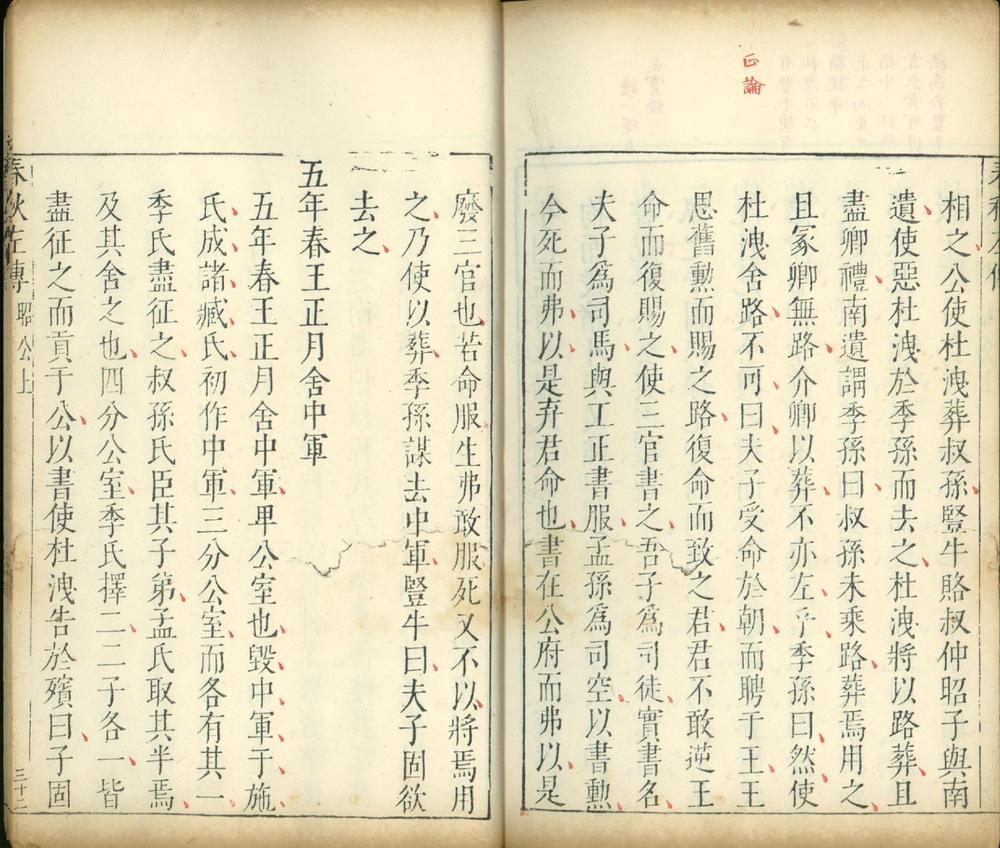 正論
相之公使杜洩葬叔孫豎牛賂叔仲昭子與南
遺使惡杜洩於季孫而去之杜洩將以路葬且
盡卿禮南遺謂季孫曰叔孫未乘路葬焉用之
且冢卿無路介卿以葬不亦左乎季孫曰然使
杜洩舍路不可曰夫子受命於朝而聘于王王
思舊勳而賜之路復命而致之君君不敢逆王
命而復賜之使三官書之吾子為司徒實書名
夫子為司馬與工正書服孟孫為司空以書勳
今死而弗以是弃君命也書在公府而弗以是
廢三官也若命服生弗敢服死又不以將焉用
之乃使以葬季孫謀去中軍豎牛曰夫子固欲
去之
五年春王正月舍中軍
五年春王正月舍中軍卑公室也毀中軍于施
氏成諸臧氏初作中軍三分公室而各有其一
季氏盡征之叔孫氏臣其子弟孟氏取其半焉
及其舍之也四分公室季氏擇二二子各一皆
盡征之而貢于公以書使杜洩告於殯曰子固
春秋左傳 昭公上 三十二